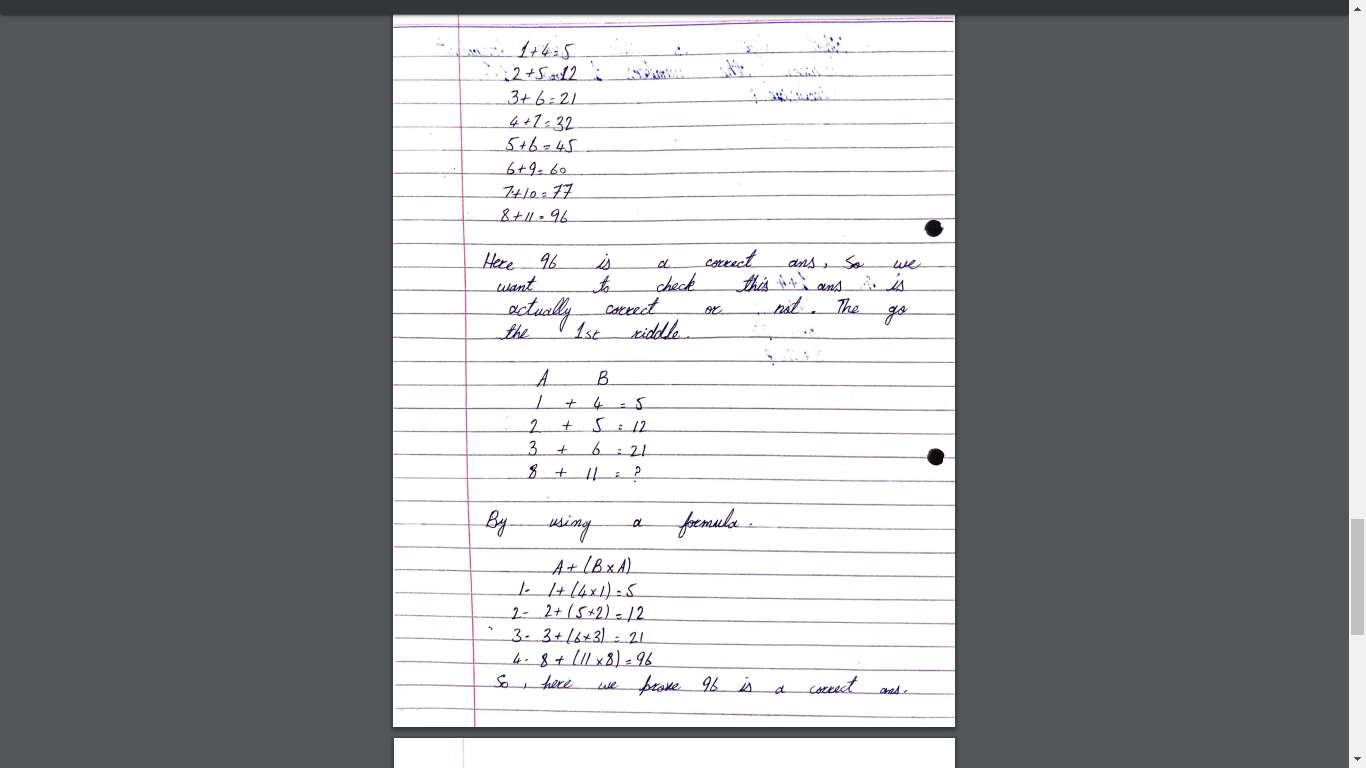 1+4=5
2+5=12
3+6=21
4+7=32
5+6=45
6+9=60
7+10=77
8+11=96
Here 96 is a correct ans, So we
want to check this ans is
actually correct or not. The go
the 1st riddle.
A B
1 + 4 = 5
2 + 5 = 12
3 + 6 = 21
8 + 11 = ?
By using a formula.
A+(B×A)
1- 1+(4×1)=5
2- 2+(5×2)=12
3- 3+(6×3)=21
4- 8+(11×8)=96
So, here we prove 96 is a correct ans.